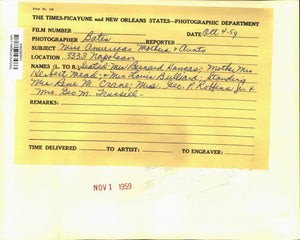 THE TIMES-PICAYUNE and NEW ORLEANS STATES—PHOTOGRAPHIC DEPARTMENT
FILM NUMBER DATE Oct 4-59
PHOTOGRAPHER Bates REPORTER
SUBJECT Miss Americas Mothers & Aunts
LOCATION 3333 Napolean
NAMES (L. TO R.) Seated Mrs Bernard Mother Mrs
Herbert Mead; & Mrs Louis Bulliard; Standing
Mrs Rene M. Crane; Miss. Geo. P. Robbins, Jr. &
Mrs. Geo M. Trussell.
REMARKS:
TIME DELIVERED TO ARTIST: TO ENGRAVER:
NOV 1 1959